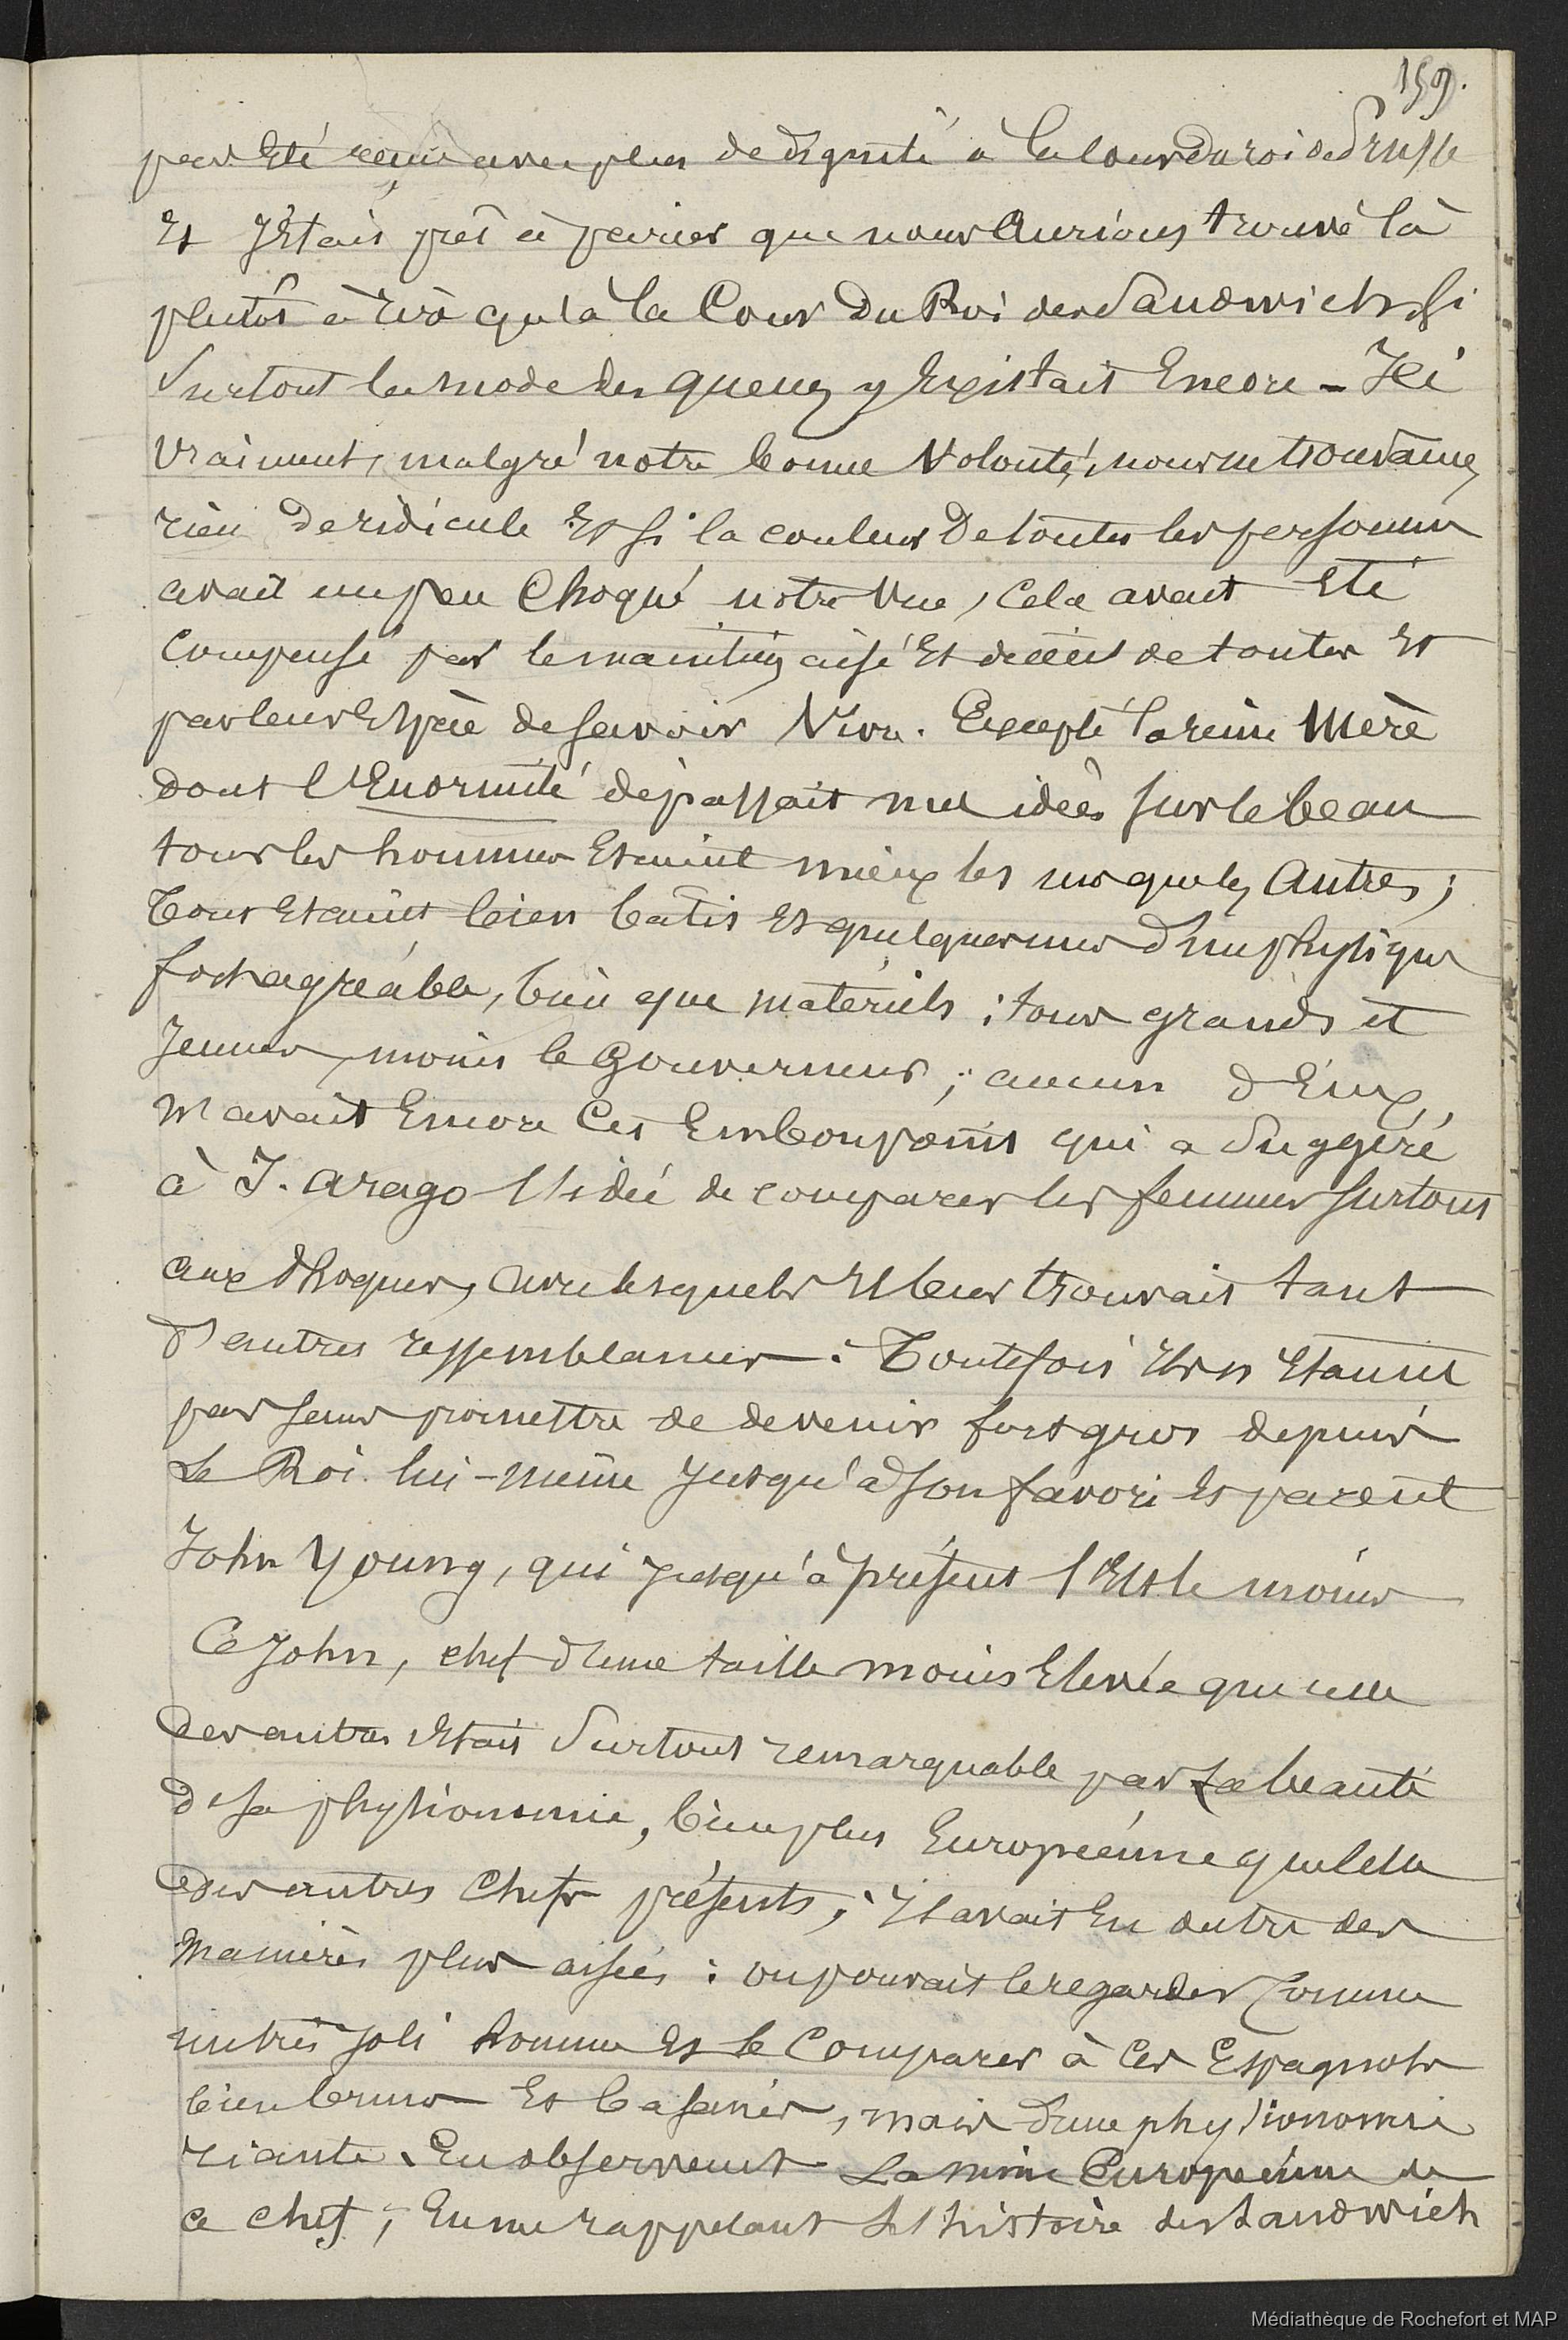 159.
pas été reçu avec plus de dignité à la cour du roi de Prusse
et j'étais prêt à parier que nous aurions trouvé là
plutôt à rire qu'à la Cour du Roi des Sandwich si
surtout la mode des queues y existait encore - Ici
vraiment, malgré notre bonne volonté, nous ne trouvâmes
rien de ridicule et si la couleur de toutes les personnes
avait un peu choqué notre vue, cela avait été
compensé par le maintien aisé et décent de toutes et
par leur espèce de savoir vivre. Excepté la reine Mère
dont l'Enormité dépassait mes idées sur le beau
tous les hommes étaient mieux les uns que les autres ;
Tous étaient bien bâtis et quelques uns d'un physique
fort agréable, bien que matériels ; tous grands et
Jeunes, moins le Gouverneur ; aucun d'eux,
n'avait encore cet embonpoint qui a suggéré
à J. arago l'idée de comparer les femmes surtout
aux phoques, avec lesquels il leur trouvait tant
d'autres ressemblances. Toutefois ils n'étaient
pas sans promettre de devenir fort gros depuis
Le Roi lui-même jusqu'à son favori et parent
John Young, qui jusqu'à présent l'est le moins
Ce John, chef d'une taille moins élevée que celle
des autres était surtout remarquable par la beauté
de sa physionomie, bien plus Européenne que celle
des autres chefs présents ; il avait en outre des
manières plus aisées : on pouvait le regarder comme
un très joli homme et le comparer à ces Espagnols
bien bruns et basanés, mais d'une physionomie
riante. En observant La mine Européenne de
ce chef, en me rappelant L'histoire des Sandwich
Médiathèque de Rochefort et MAP